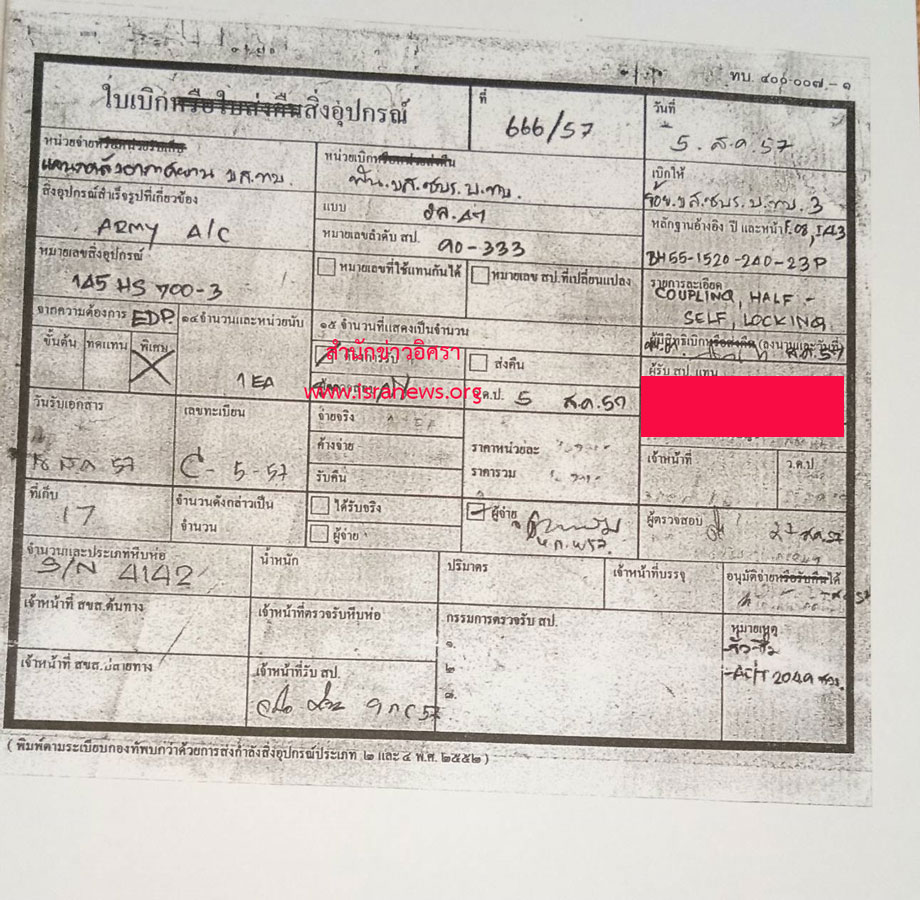 ทบ. ๔๐๐-๐๐๗-๑
ใบเบิกหรือใบส่งคืนสิ่งอุปกรณ์
ที่
666/57
วันที่
5 ส.ค. 57
หน่วยจ่ายหรือหน่วยรับคืน
ขส.ทบ.
หน่วยเบิกหรือหน่วยส่งคืน
พัน.ขส.ซบร.บ.ทบ.
เบิกให้
ร้อย.ขส.ซบร.บ.ทบ. 3
สิ่งอุปกรณ์สำเร็จรูปที่เกี่ยวข้อง
ARMY A/C
แบบ
ฮล.
หมายเลขลำดับ สป.
90-333
หลักฐานอ้างอิง ปี และหน้า F.08, I43
BH55-1520-240-23P
หมายเลขสิ่งอุปกรณ์
145 HS 700-3
หมายเลขที่ใช้แทนกันได้
หมายเลข สป.ที่เปลี่ยนแปลง
รายการละเอียด
COUPLING, HALF -
SELF, LOCKING
จากความต้องการ EDP.
ขั้นต้น
ทดแทน
พิเศษ
๑๔ จำนวนและหน่วยนับ
1 EA
๑๕ จำนวนที่แสดงเป็นจำนวน
สำนักข่าวอิศรา
www.isranews.org
ส่งคืน
ว.ด.ป. 5 ส.ค. 57
ผู้มีสิทธิเบิกหรือส่งคืน (ลงนามและวันที่)
ส.ค. 57
ผู้รับ สป. แทน
วันรับเอกสาร
18 ส.ค. 57
เลขทะเบียน
C - 5 - 57
จ่ายจริง
ค้างจ่าย
รับคืน
ราคาหน่วยละ
ราคารวม
เจ้าหน้าที่
ว.ด.ป
ที่เก็บ
17
จำนวนดังกล่าวเป็น
จำนวน
ได้รับจริง
ผู้จ่าย
ผู้จ่าย
ผู้ตรวจสอบ
27 ส.ค. 57
จำนวนและประเภทหีบห่อ
S/N 4142
น้ำหนัก
ปริมาตร
เจ้าหน้าที่บรรจุ
อนุมัติจ่ายหรือรับคืนได้
เจ้าหน้าที่ สขส.ต้นทาง
เจ้าหน้าที่ตรวจรับหีบห่อ
กรรมการตรวจรับ สป.
๑.
๒.
๓.
หมายเหตุ
-ACFT 2049
เจ้าหน้าที่ สขส.ปลายทาง
เจ้าหน้าที่รับ สป.
57
( พิมพ์ตามระเบียบกองทัพบกว่าด้วยการส่งกำลังสิ่งอุปกรณ์ประเภท ๒ และ ๔ พ.ศ. ๒๕๕๒ )